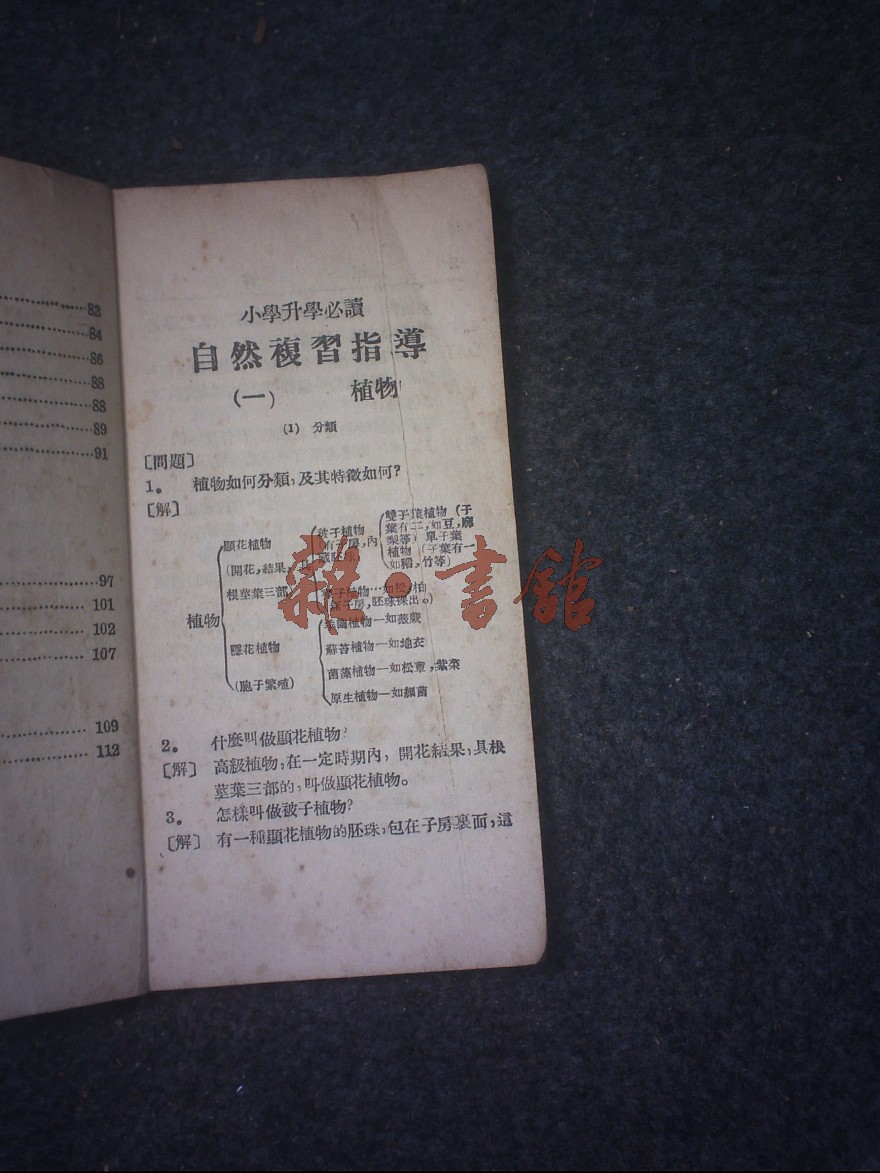 83
84
86
88
88
89
91
97
101
102
107
109
112
小學升學必讀
自然複習指導
(一) 植物
(1) 分類
〔問題〕
1。 植物如何分類,及其特徵如何?
〔解〕
植物
顯花植物
(開花,結果,
根莖葉三部)
被子植物
有子房,內
雙子葉植物 (子
葉有二,如豆,
梨等) 單子葉
植物 (子葉有一
如稻,竹等)
子植物…如松,柏
子房,胚珠裸出。)
隱花植物
(胞子繁殖)
植物—如薇蕨
蘇苔植物—如地衣
菌藻植物—如松蕈,紫菜
原生植物—如細菌
2。 什麼叫做顯花植物?
〔解〕 高級植物,在一定時期內,開花結果,具根
莖葉三部的,叫做顯花植物。
3。 怎樣叫做被子植物?
〔解〕 有一種顯花植物的胚珠,包在子房裏面,這
雜·書館